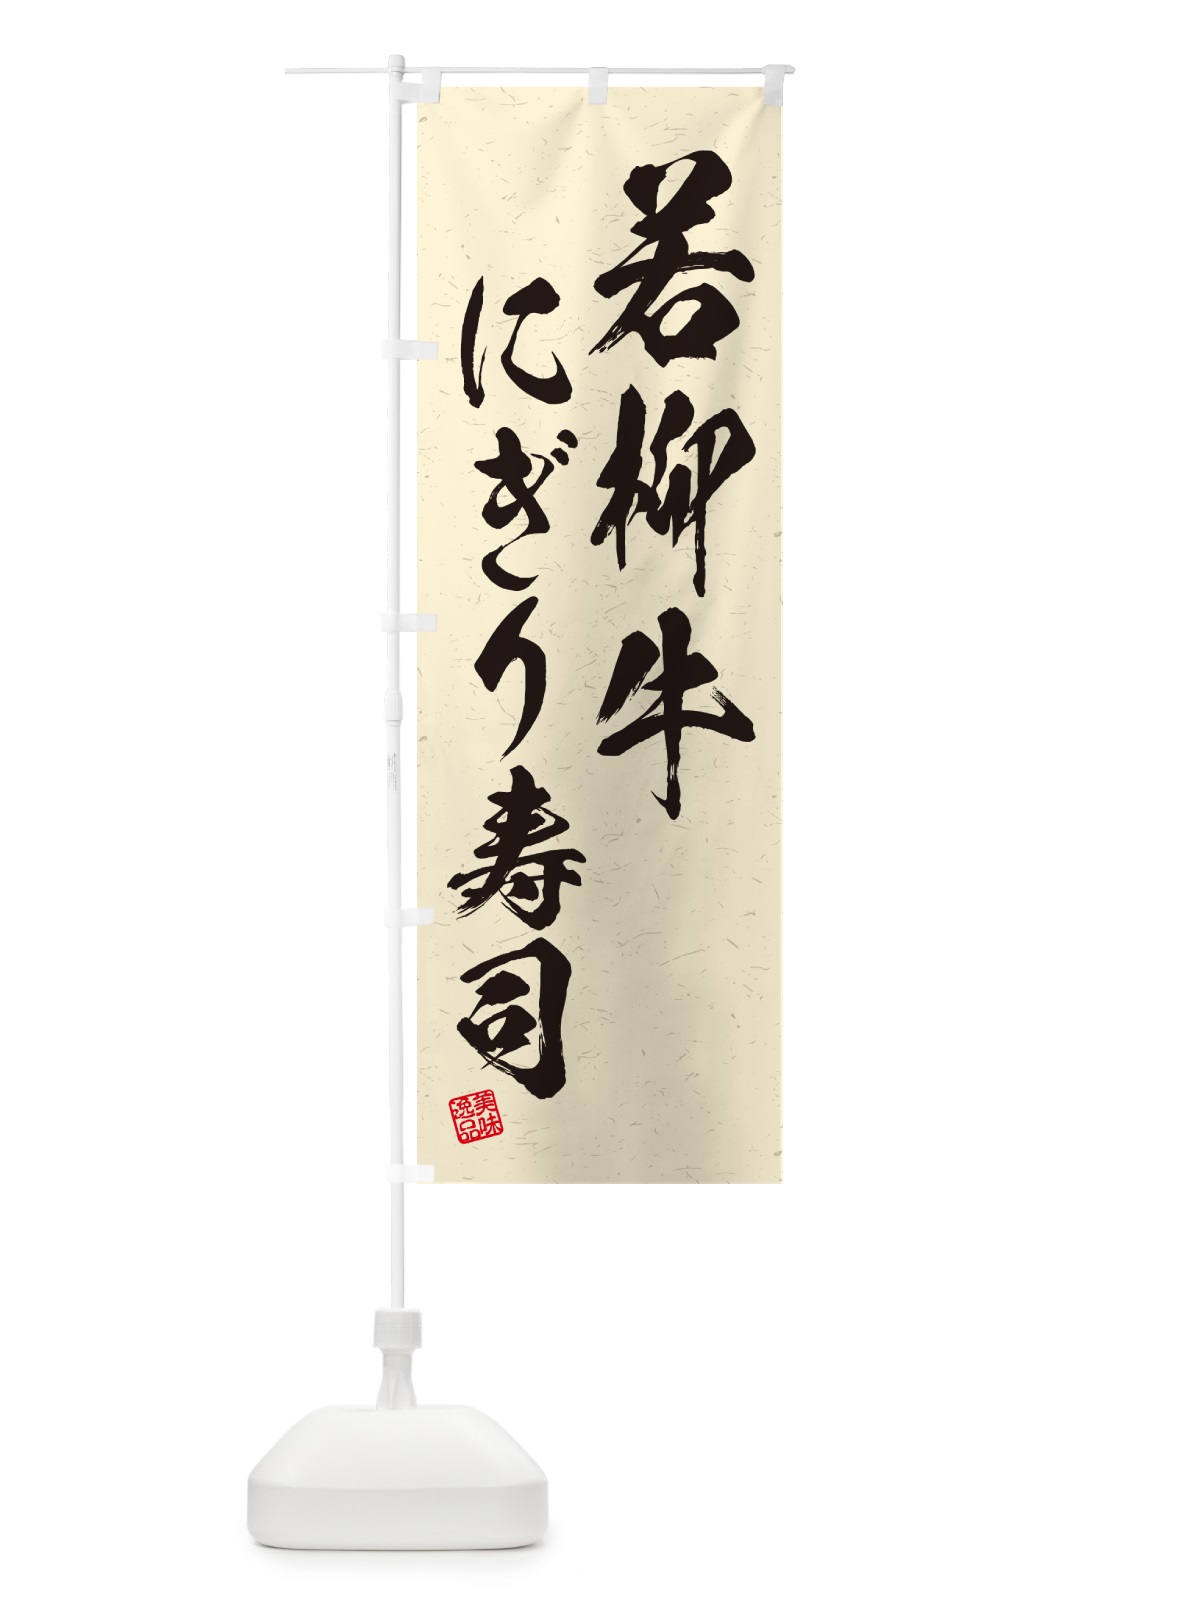 若柳牛
にぎり寿司
美味
逸品